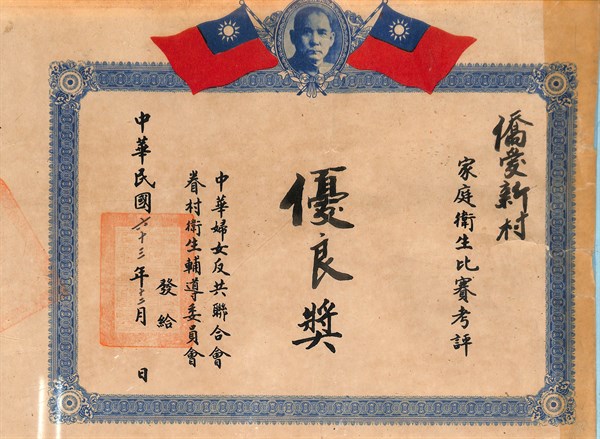 僑愛新村
家庭衛生比賽考評
優良獎
中華婦女反共聯合會
眷村衛生輔導委員會
發給
中華民國六十三年十二月 日